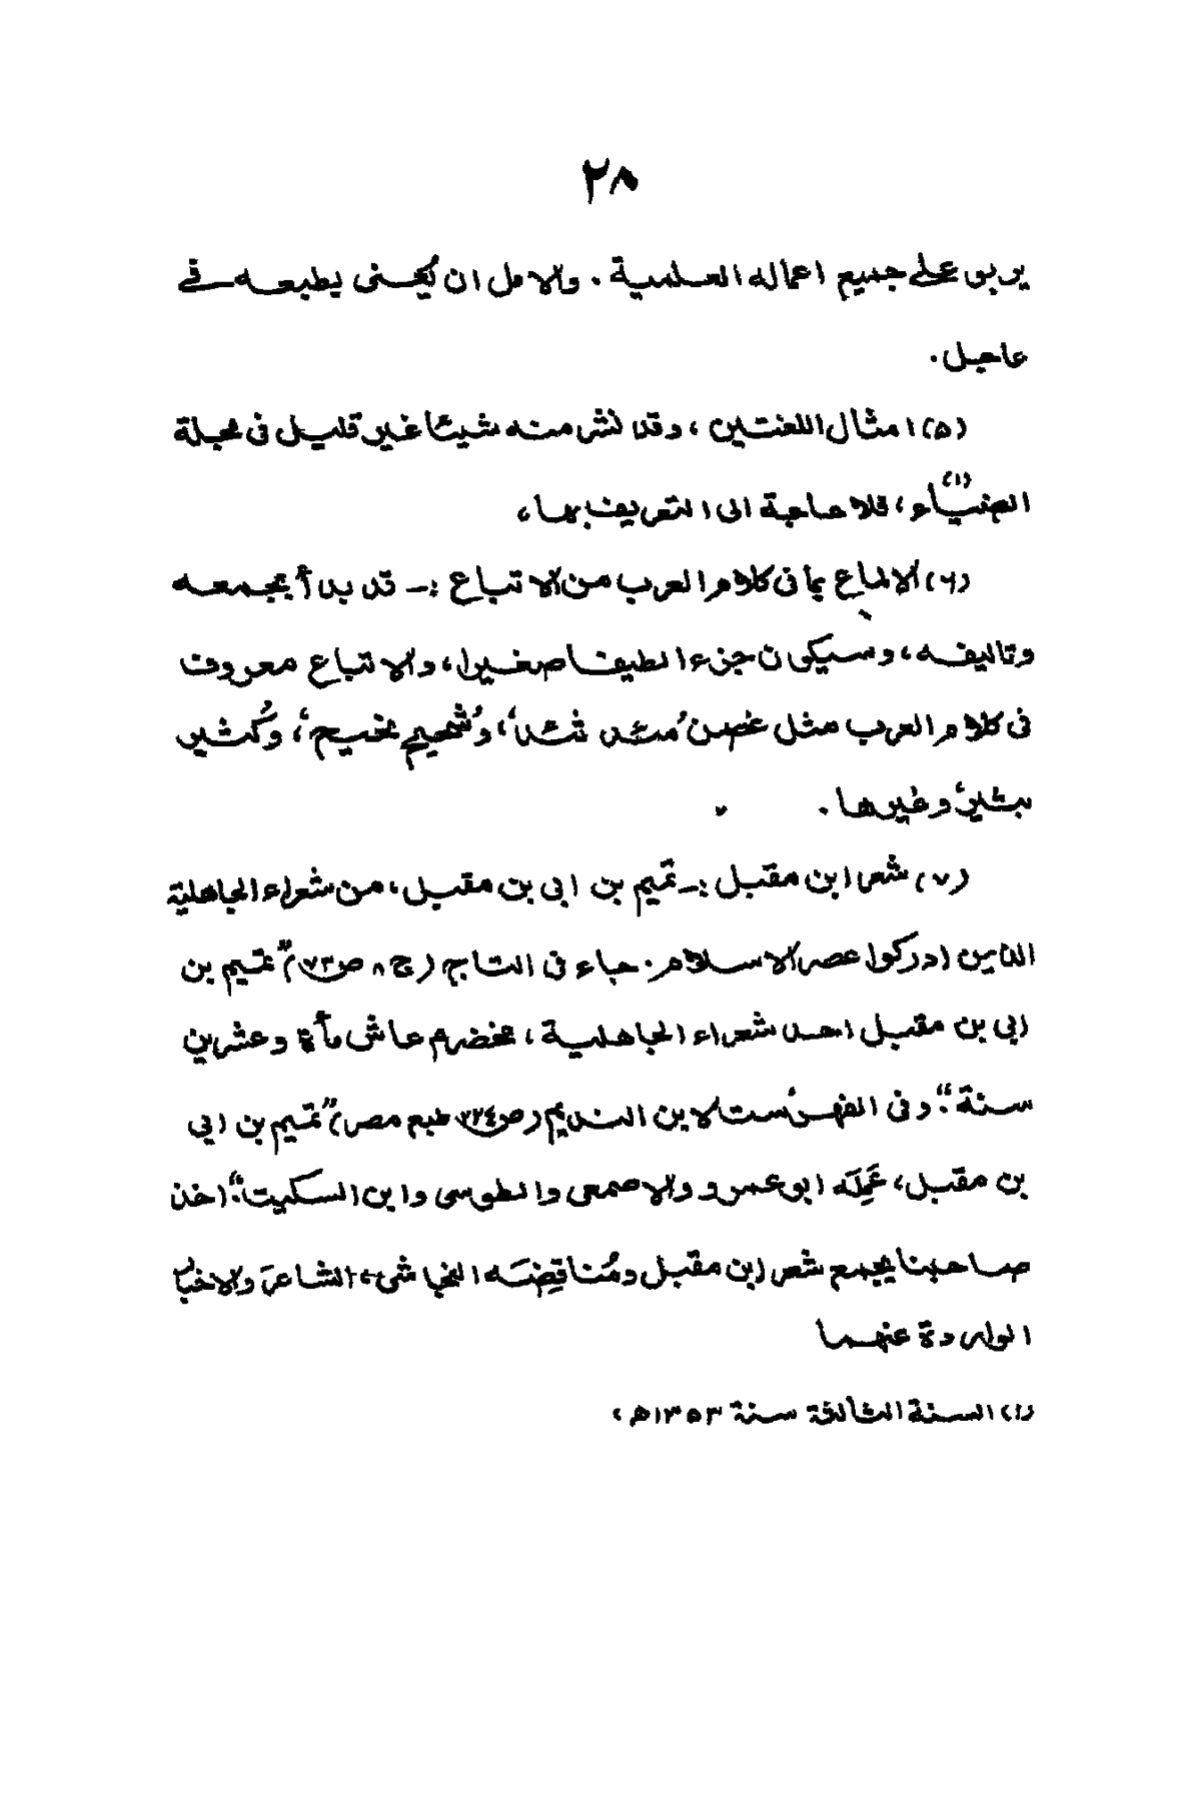 ٢٨
يربو على جميع اعماله العلمية . والامل ان يُحنى بطبعه في
عاجل .
(۵) امثال اللغتين ، وقد نشر منه شيئا غير قليل فى مجلة
الضياء(١) ، فلا حاجة الى التعريف بها ،
(٦) الالماع بما فى كلام العرب من الاتباع :ـ قد بدأ بجمعه
وتاليفه ، وسيكون جزءا لطيفا صغيرا ، والاتباع معروف
فى كلام العرب مثل غصن مَئد ثئد ، وشحيح نحيح ، وكثير
بثير وغيرها .
(٧) شعر ابن مقبل :ـ تميم بن ابى بن مقبل ، من شعراء الجاهلية
الذين ادركوا عصر الاسلام . جاء فى التاج (ج ٨ ص ٧٣) "تميم بن
ابى بن مقبل احد شعراء الجاهلية ، مخضرم عاش مأة وعشرين
سنة". وفى الفهرست لابن النديم (ص ٢٢٤ طبع مصر) "تميم بن ابى
بن مقبل ، عَمِلَه ابو عمرو والاصمعى والطوسى وابن السكيت" اخذ
صاحبنا يجمع شعر ابن مقبل ومُناقِضَه النجاشىء الشاعرَ والاخبار
الواردة عنهما
(١) السنة الثالثة سنة ١٣۵٣هـ ،